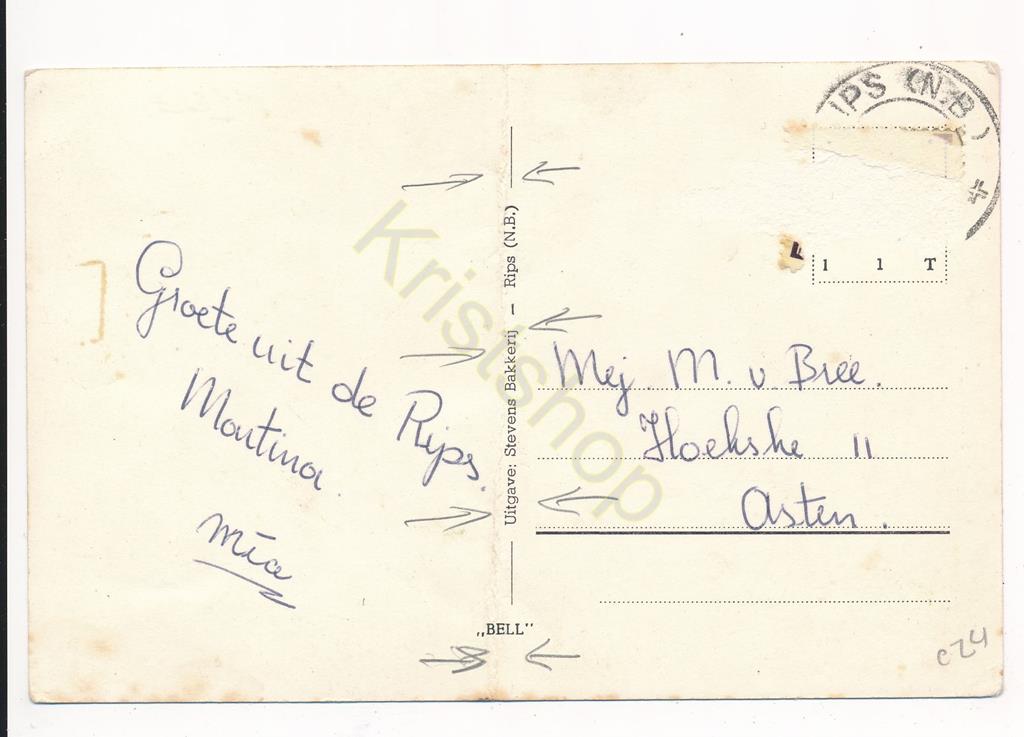 RIPS (N.B.)
F
1 1 T
Groete uit de Rips.
Martina.
Mia
Uitgave: Stevens Bakkerij — Rips (N.B.)
„BELL”
Kristshop
Mej. M. v. Bree.
Hoekske 11
Asten.
c24